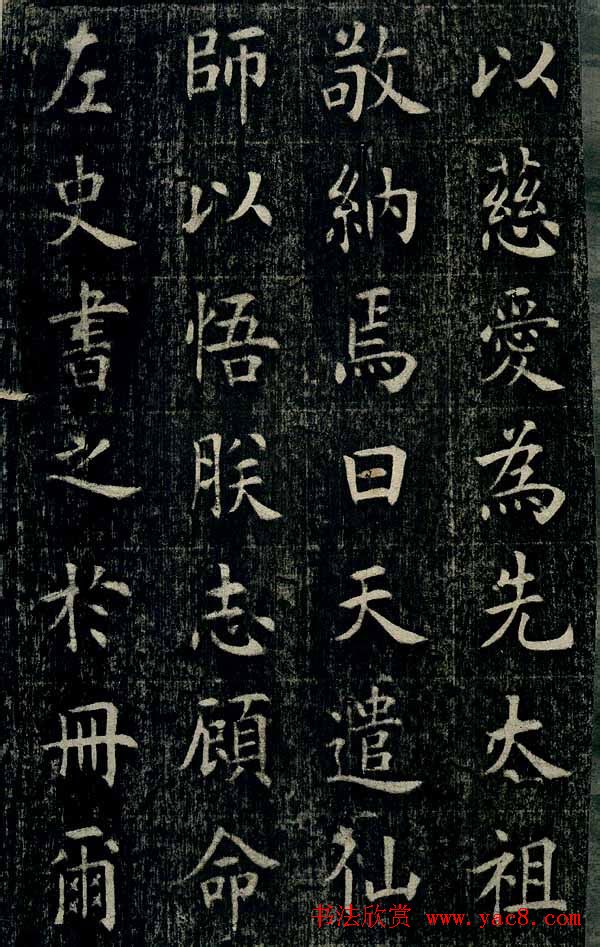 以慈愛為先太祖
敬納焉曰天遣仙
師以悟朕志顧命
左史書之於冊爾
书法欣赏 www.yac8.com